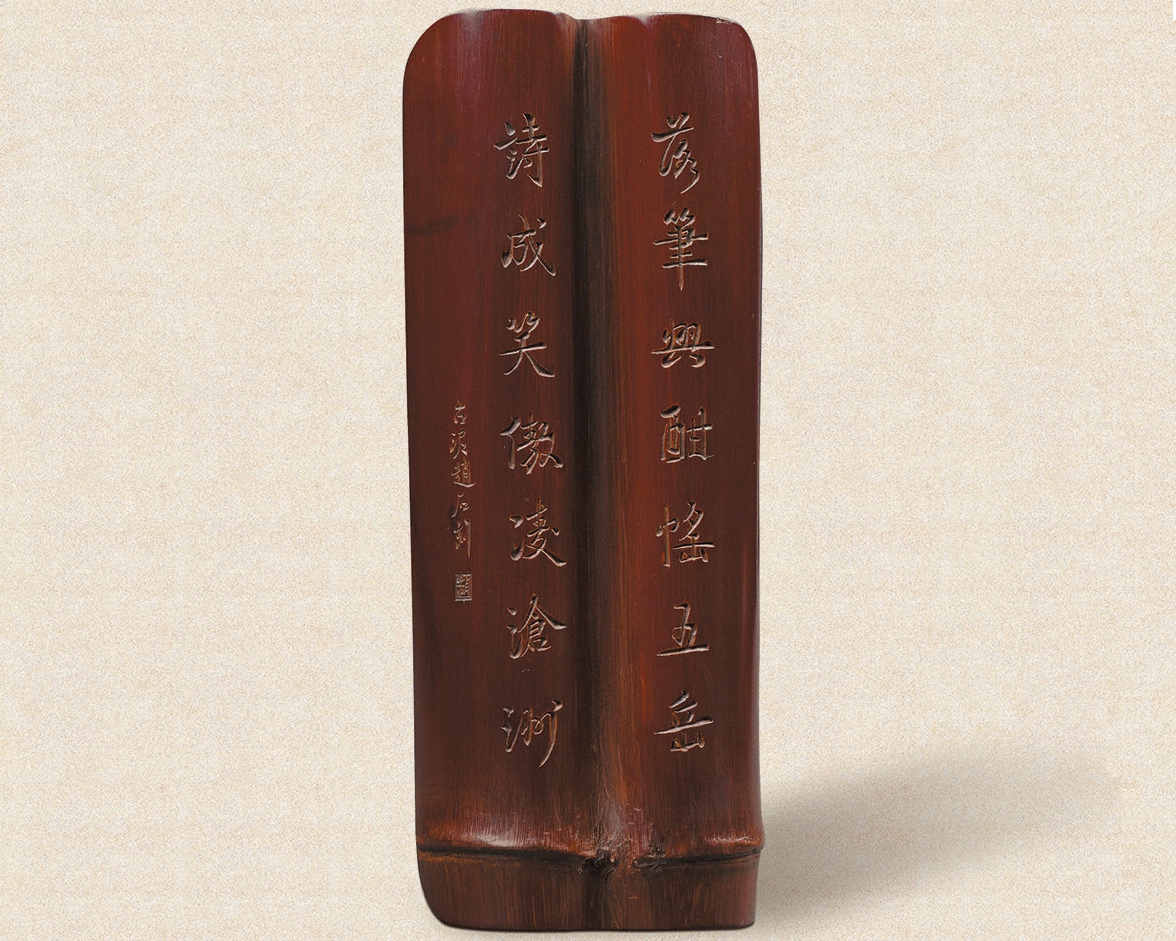 落筆興酣愮五岳
詩成笑傲凌滄洲
古泥趙石刻